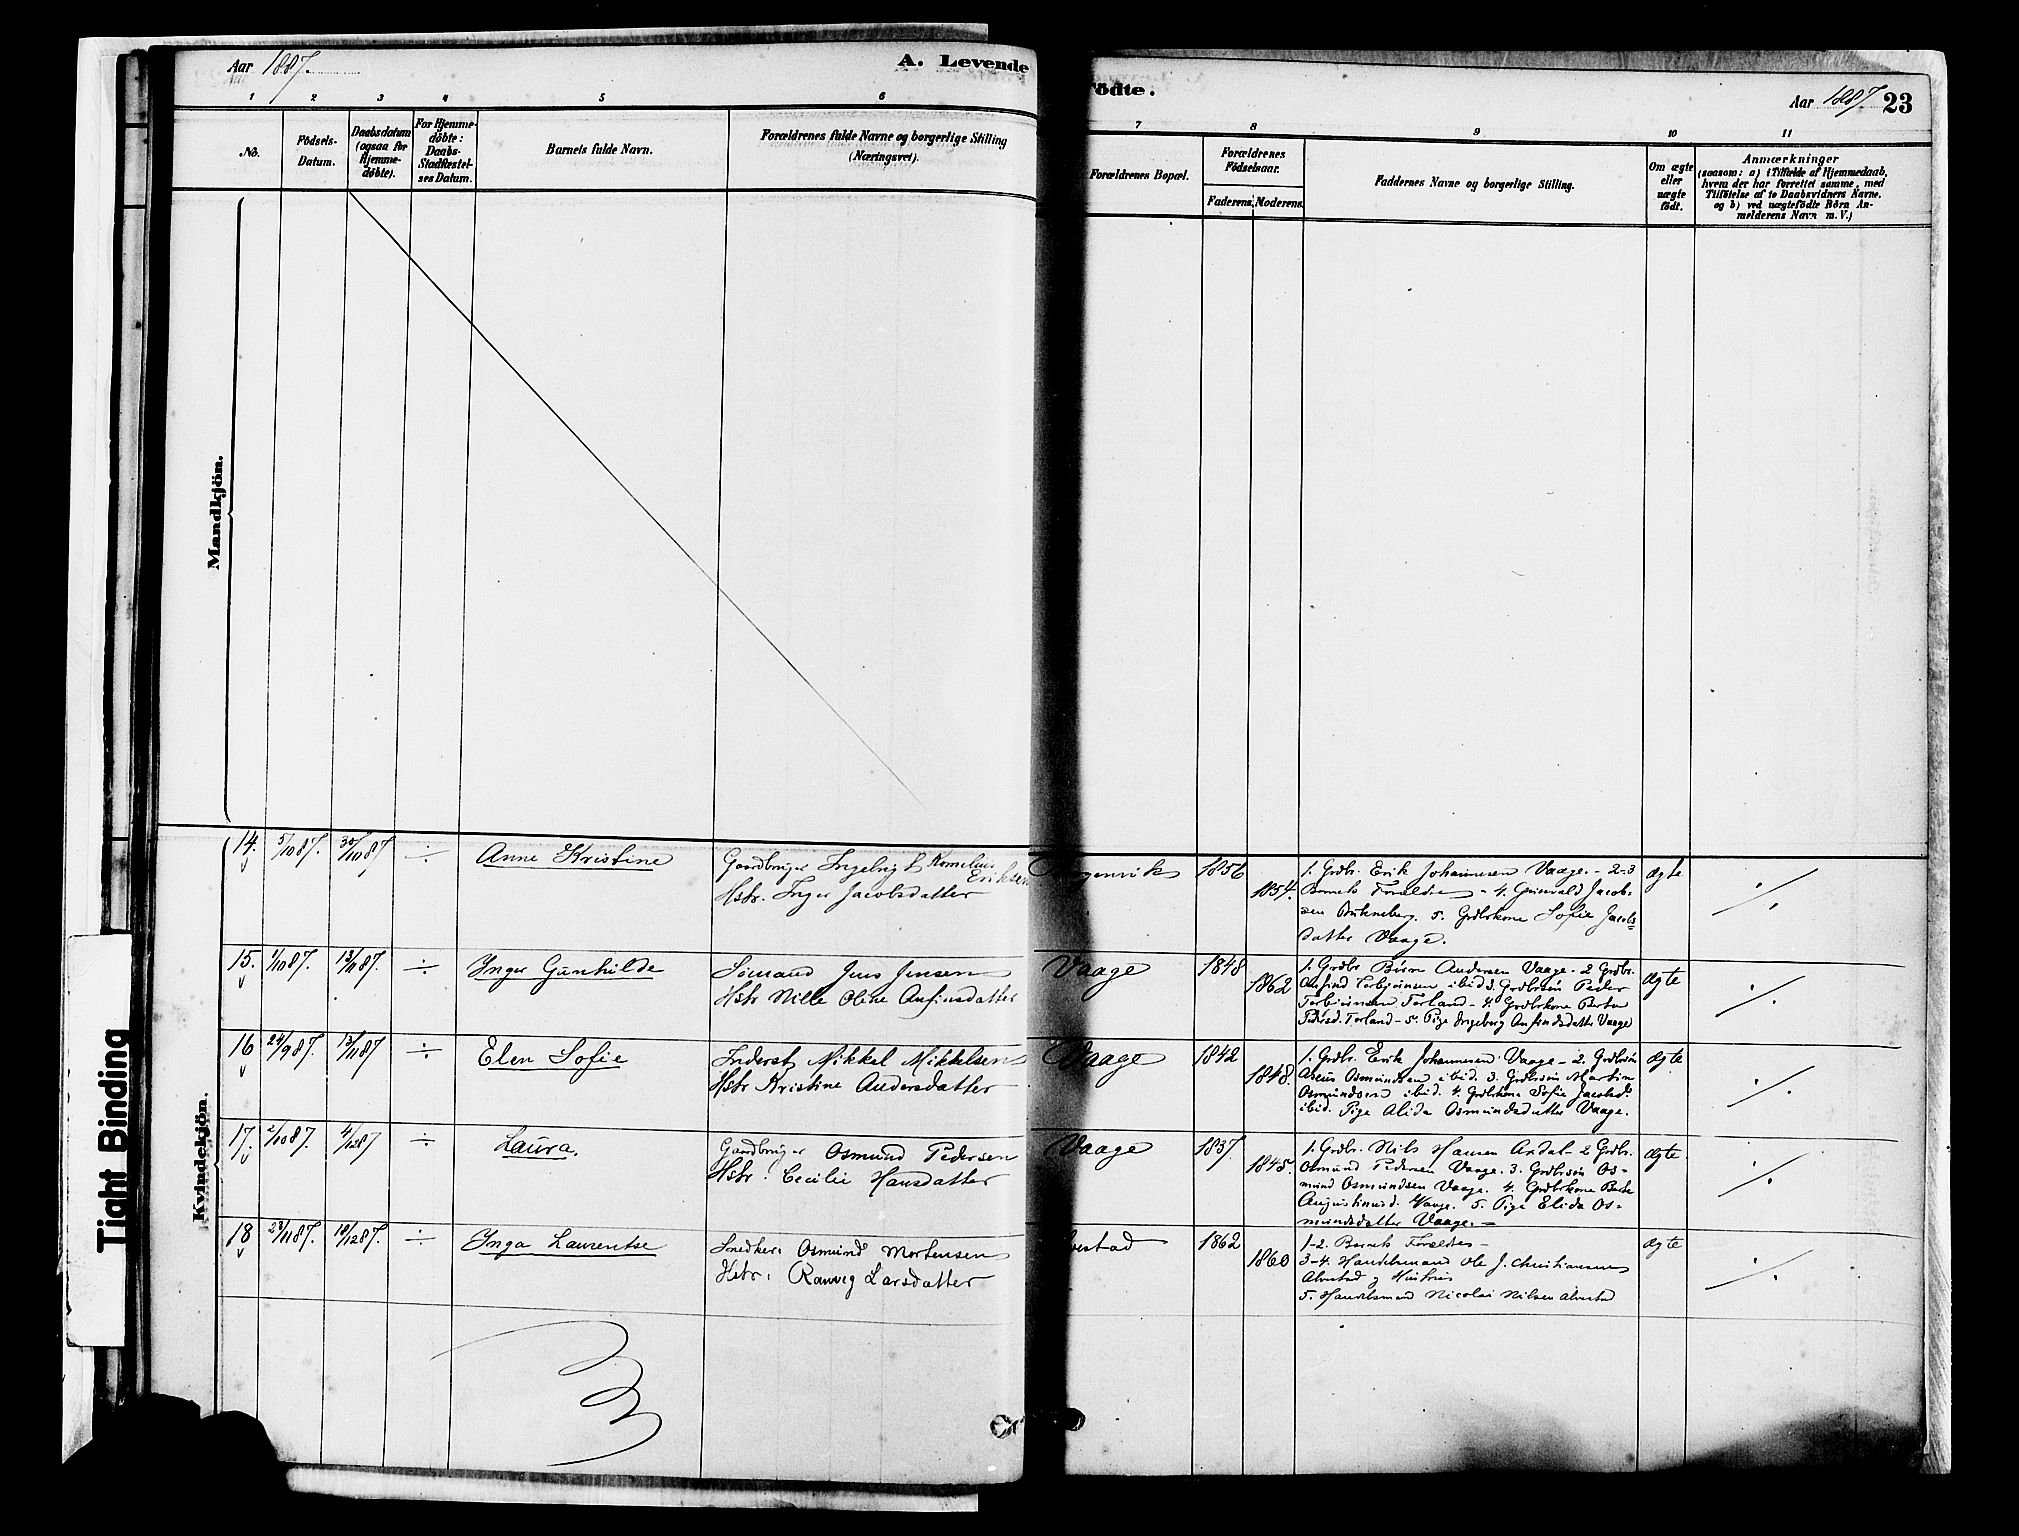 Aar 1887.
A. Levende
1 2 3 4 5 6
No.
Födsels-
Datum.
Daabsdatum
(ogsaa for
Hjemme-
döbte).
For Hjemme-
döbte:
Daabs-
Stadfæstel-
ses Datum.
Barnets fulde Navn.
Forældrenes fulde Navne og borgerlige Stilling
(Næringsvei).
Mandkjön.
Kvindekjön.
14. 5/10 87. 30/10 87 ÷ Anne Kristine
Gaardbruger Ingebrigt Kornelius
Eriksen
Hstr. Inger Jacobsdatter
15. 1/10 87. 13/11 87. ÷ Inger Gunhilde
Sømand Jens Jensen
Hstr Nille Oline Anfinsdatter
16 24/9 87. 13/11 87 ÷ Elen Sofie
Inderst Mikkel Mikkelsen
Hstr Kristine Andersdatter
17. 2/10 87. 4/12 87 ÷ Laura.
Gaardbruger Osmund Pedersen
Hstr. Cecilie Hansdatter
18 23/11 87. 18/12 87. ÷ Inga Laurentse
Snedker Osmund Mortensen
Hstr. Ranveg Larsdatter
Tight Binding
Födte.
Aar 1887. 23
7 8 9 10 11
Forældrenes Bopæl.
Forældrenes
Födselsaar.
Faderens. Moderens.
Faddernes Navne og borgerlige Stilling.
Om ægte
eller
uægte
födt.
Anmærkninger
(saasom: a) i Tilfælde af Hjemmedaab,
hvem der har forrettet samme, med
Tilföielse af to Daabsvidners Navne.
og b) ved uægtefödte Börn An-
melderens Navn m. V.)
1856
1854.
1. Grdbr. Erik Johannesen Vaage. - 2-3
Barnets Forældre - 4. Jacob-
sen 5. Grdbrkone Sofie Jacobs-
datter Vaage.
ægte
Vaage 1848
1862
1. Grdbr Andersen Vaage. 2 Grdbr.
Anfind Torbjörnsen ibid 3. Grdbrsön Peder
Torbjörnsen Forland - 4. Grdbrkone Berta
Pedersd. Forland - 5. Pige Ingeborg Anfindsdatter Vaage
ægte
Vaage 1842
1848.
1. Grdbr. Erik Johannesen Vaage - 2. Grdbrsön
Osmundsen ibid. 3. Grdbrsön Martin
Osmundsen ibid. 4. Grdbrkone Sofie Jacobsd.
ibid. Pige Alida Osmundsdatter Vaage.
ægte
Vaage 1837.
1845.
1. Grdbr. Nils Hansen - 2 Grdbr.
Osmund Pedersen Vaage. 3. Grdbrsön Os-
mund Osmundsen Vaage. 4. Grdbrkone Berte
Augustinusd. Vaage. 5. Pige Elida Os-
mundsdatter Vaage. -
ægte
1862
1860
1-2. Barnets Forældre -
3-4. Handelsmand Ole J. Christiansen
Alvestad og Hustru
5. Handelsmand Nicolai Nilsen Alvestad
ægte